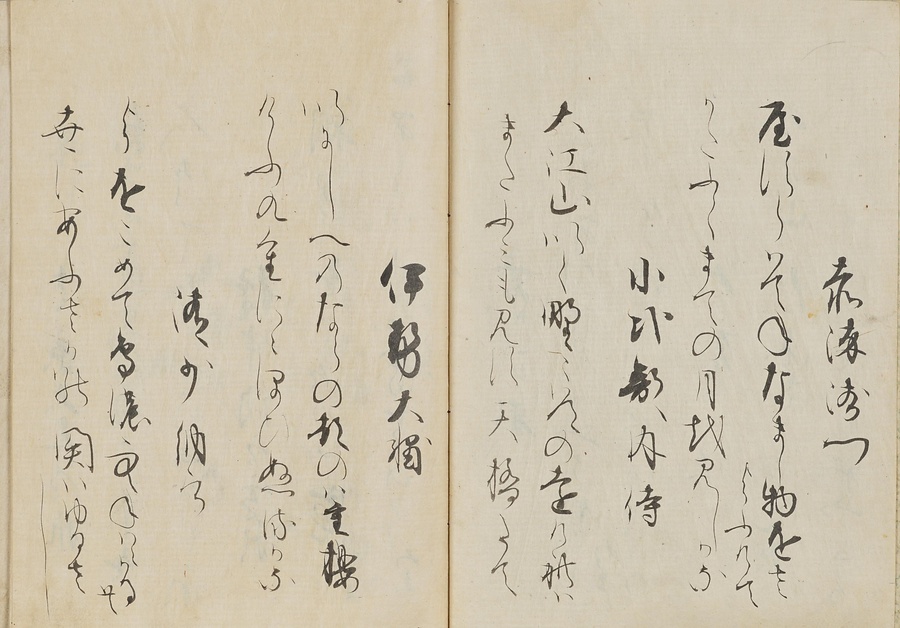 赤染衛門
屋すらはてねなまし物をさ
よふけて
かたふくまての月越見しかな
小式部内侍
大江山いく野のみちの遠けれは
またふみも見す天橋たて
伊勢大輔
いにしへのならの都の八重桜
けふ九重ににほひぬるかな
清少納言
よをこめて鳥濃空ねははかる
共
世にあふさかの関はゆるさし